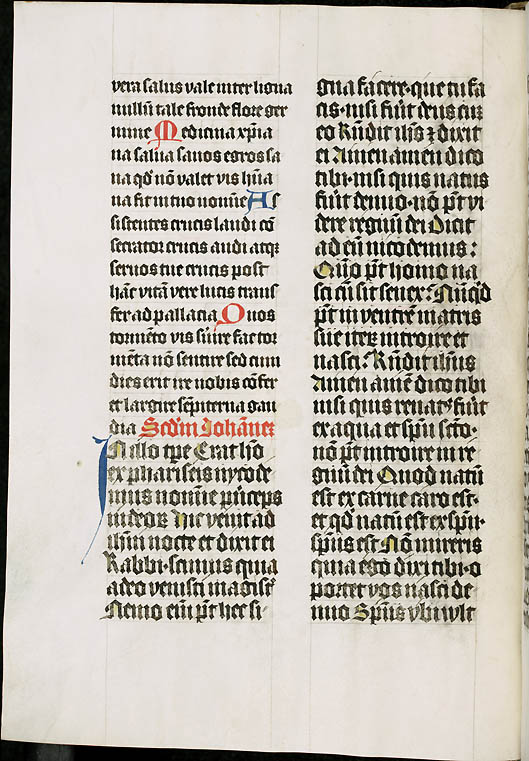 vera salus vale inter ligna
nullū tale fronde flore ger
mine Medicina xp̄ia
na salua sanos egros sa
na qd̄ nō valet vis hūa
na fit in tuo nomīe As
sistentes crucis laudi cō
secrator crucis audi atqꝫ
seruos tue crucis post
hāc vitā vere lucis trans
fer ad pallacia Quos
tormēto vis sūire fac tor
mēta nō sentire sed cum
dies erit ire nobis cōfer
et largire sēpiterna gau
dia Scd̄m Johānem
In illo tp̄e Erat hō
ex phariseis nycode
mus nomīe prīceps
iudeoꝝ Hic venit ad
ihm̄ nocte et dixit ei
Rabbi scimus quia
a deo venisti magistʳ
Nemo eī p̄t hec si
gna facere que tu fa
cis nisi fūit deus cuꝫ
eo Rn̄dit ihs̄ ⁊ dixit
ei Amen amen dico
tibi nisi quis natus
fūit denuo nō p̄t vi
dere regnū dei Dicit
ad eū nicodemus :
Quō p̄t homo na
sci cū sit senex Nūqd̄
p̄t in ventrē matris
sue iteꝝ introire et
nasci Rn̄dit ihūs
Amen amē dico tibi
nisi quis renatꝰ fūit
ex aqua et spū scto
nō p̄t introire in re
gnū dei Quod natū
est ex carne caro est
et qd̄ natū est ex spū
spūs est Nō mireris
quia ego dixi tibi o
portet vos nasci de
nuo Spūs vbi wlt